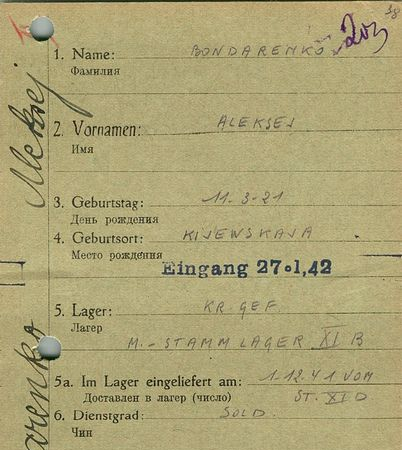 38
203
1. Name: BONDARENKO
Фамилия
2. Vornamen: ALEKSEJ
Имя
3. Geburtstag: 11-3-21
День рождения
4. Geburtsort: KIJEWSKAJA
Место рождения
Eingang 27.1.42
5. Lager: KR. GEF
Лагер
M.-STAMMLAGER XI B
5a. Im Lager eingeliefert am: 1-12.41 VOM
Доставлен в лагер (число) ST. XI D
6. Dienstgrad: SOLD.
Чин
Aleksej
arenko